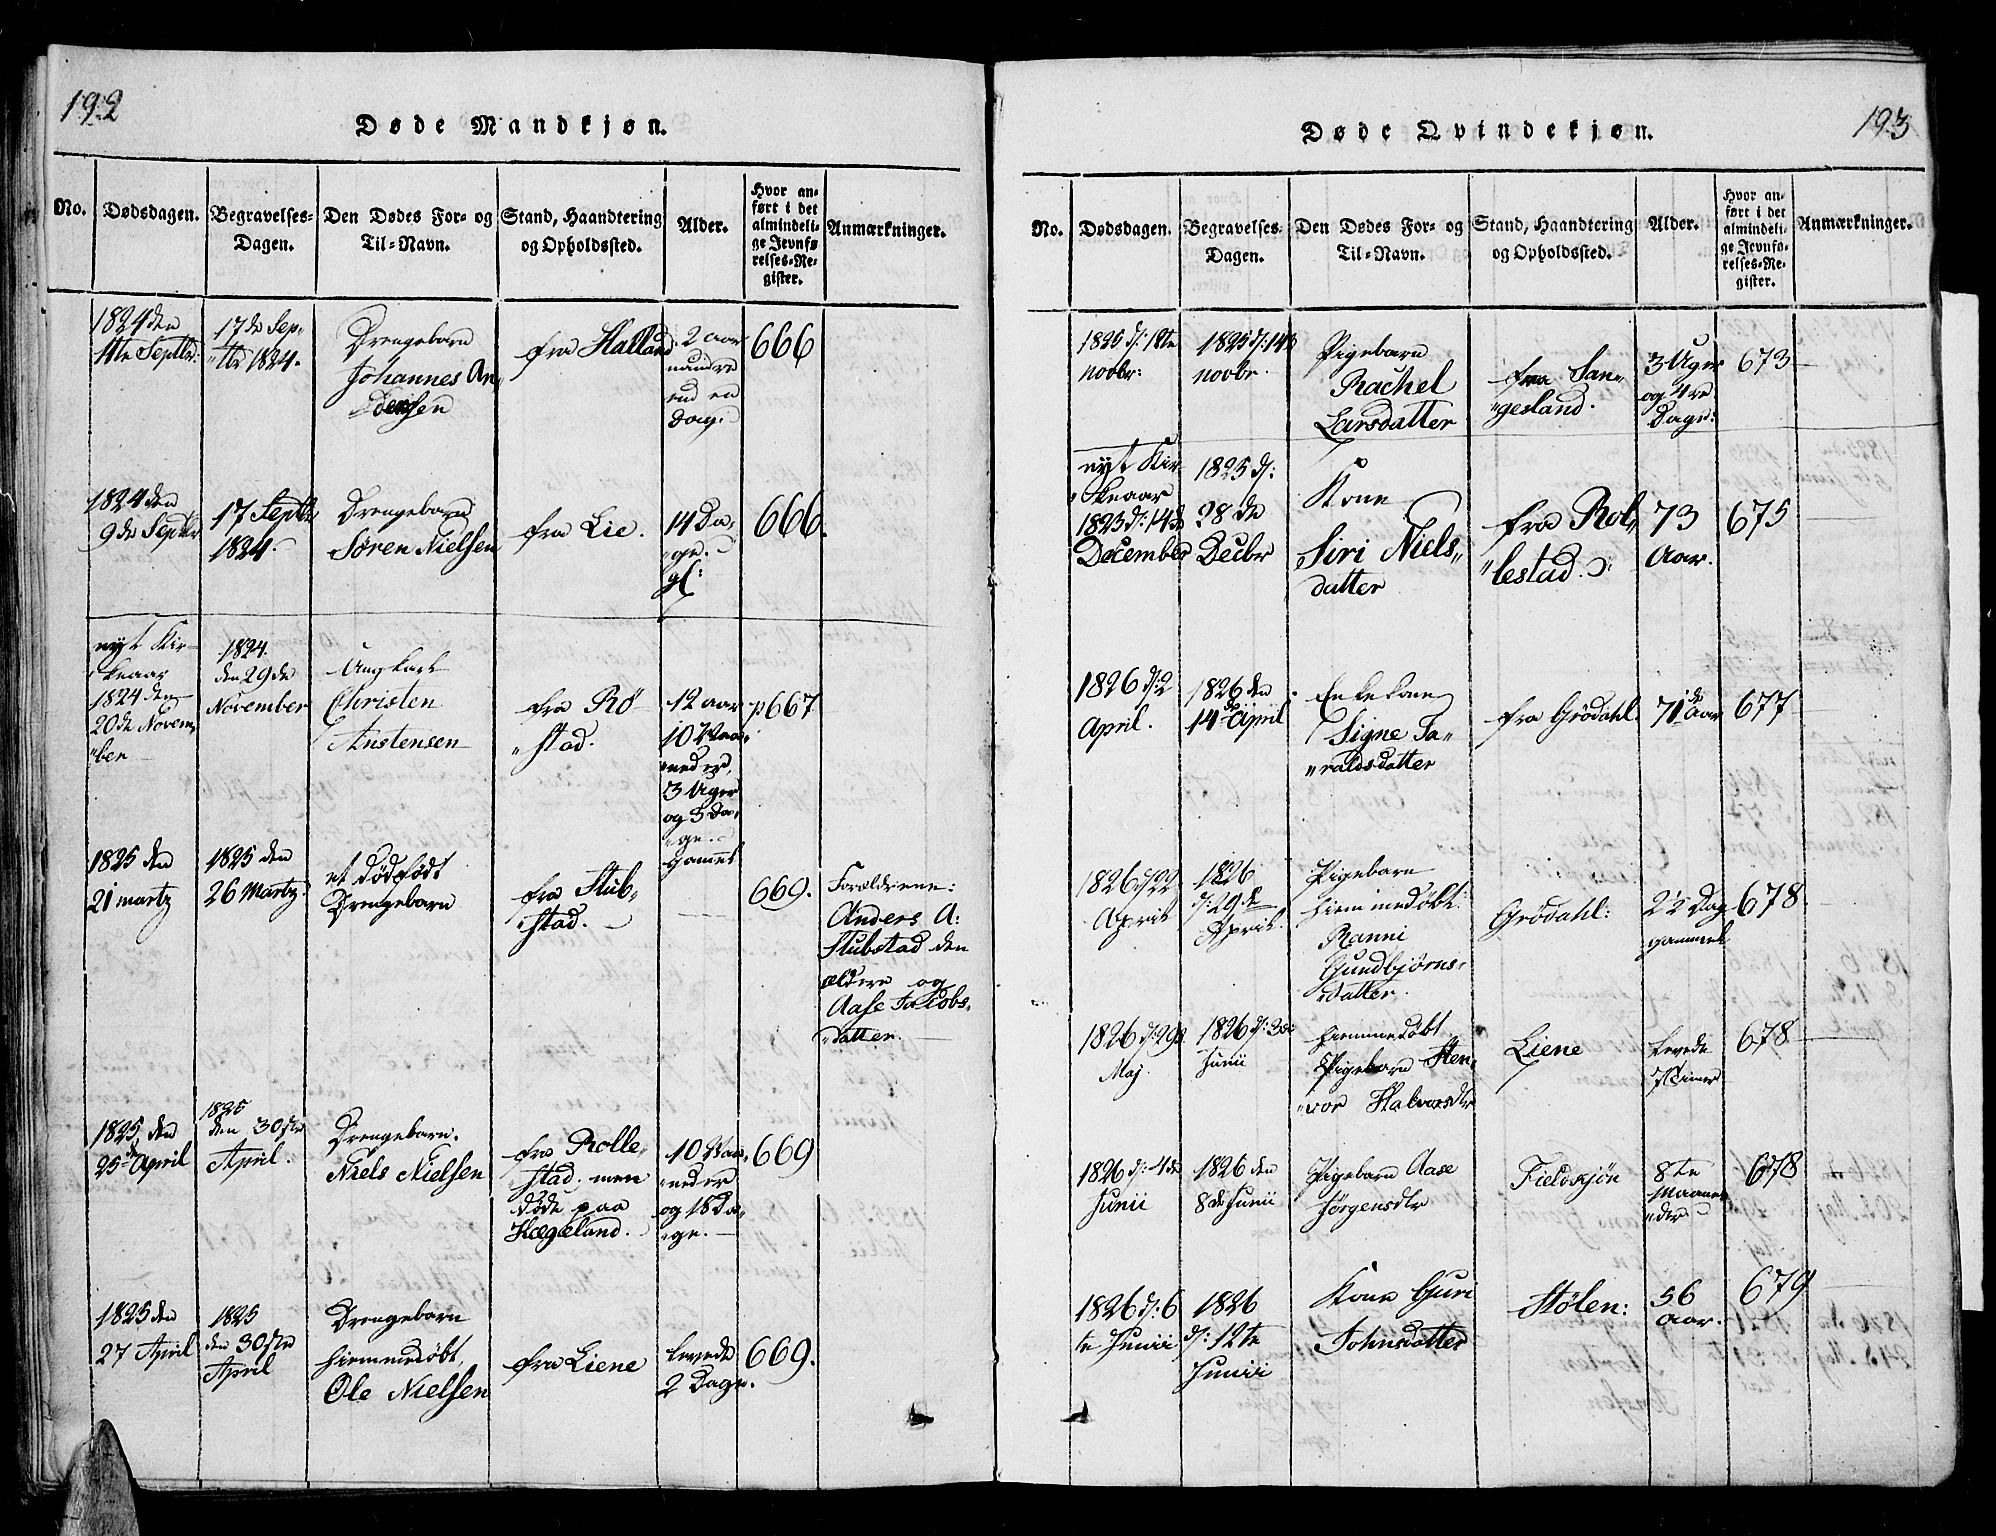 192
Døde Mandkjøn.
No.
Dødsdagen.
Begravelses=
Dagen.
Den Dødes For= og
Til=Navn.
Stand, Haandtering
og Opholdssted.
Alder.
Hvor an=
ført i det
almindeli=
ge Jevnfø
relses=Re=
gister.
Anmærkninger.
1824 den
11te Septbr:
17de Sep=
tbr 1824.
Drengebarn
Johannes An=
dersen
fra Halland
2 aar
mindre
end en
Dag.
666
1824 den
9de Septbr
17 Septbr
1824.
Drengebarn
Søren Nielsen
fra Lie.
14 Da=
ge.
gl:
666.
nyt Kir=
keaar
1824 den
20de Novem=
ber
1824.
den 29de
November
Ungkarl
Christen
Anstensen
fra Rø
stad.
12 aar
10 Maa=
neder,
3 Uger
og 3 Da=
ge.
gammel
p667
1825 den
21 martz
1825 den
26 Martz.
et dødfødt
Drengebarn
fra Stub=
stad.
669.
Forældrene:
Anders A:
Stubstad den
ældere og
Aase Jacobs=
datter.
1825, den
25de April
1825
den 30te
April.
Drengebarn.
Niels Nielsen
fra Rolle=
stad. men
døde paa
Hægeland.
10 Maa=
neder
og 18 Da=
ge.
669
1825 den
27 April
1825
den 30te
April
Drengebarn
hiemmedøbt
Ole Nielsen
fra Liene
levede
2 Dage.
669.
193
Døde Qvindekjøn.
No.
Dødsdagen.
Begravelses=
Dagen.
Den Dødes For= og
Til=Navn.
Stand, Haandtering
og Opholdssted.
Alder.
Hvor an=
ført i det
almindeli=
ge Jevnfø=
relses=Re=
gister.
Anmærkninger.
1825 d: 12te
novbr:
1825 d: 14de
novbr.
Pigebarn
Rachel
Larsdatter
fra San=
gesland.
3 Uger
og 4re
Dage:
673
nyt Kir=
keaar
1825 d: 14de
December
1825 d:
28de
Decbr
Kone
Siri Niels=
datter
fra Rol=
lestad.
73
Aar.
675
1826 d: 2
April.
1826 den
14de April
Enkekone
Signe Ta=
raldsdatter
fra Grödahl.
71 Aar
677
1826 d: 22
April
1826
d: 29de
April.
Pigebarn
hiemmedøbt:
Ranni
Gundbjørns=
datter.
Grödahl:
22 Dag
gammel
678.
1826 d: 29
Maj
1826 d: 3de
Junii
hiemmedøbt
Pigebarn Hen=
vor Halvorsdtr
Liene
levede
678
1826 d: 4de
Junii
1826 den
8de Junii
Pigebarn Aase
Jörgensdtr
Fieldskjön
8te
Maane=
der
678
1826 d: 6
te Junii
1826
d: 12te
Junii
Kone Guri
Johnsdatter
Stölen:
56
aar.
679